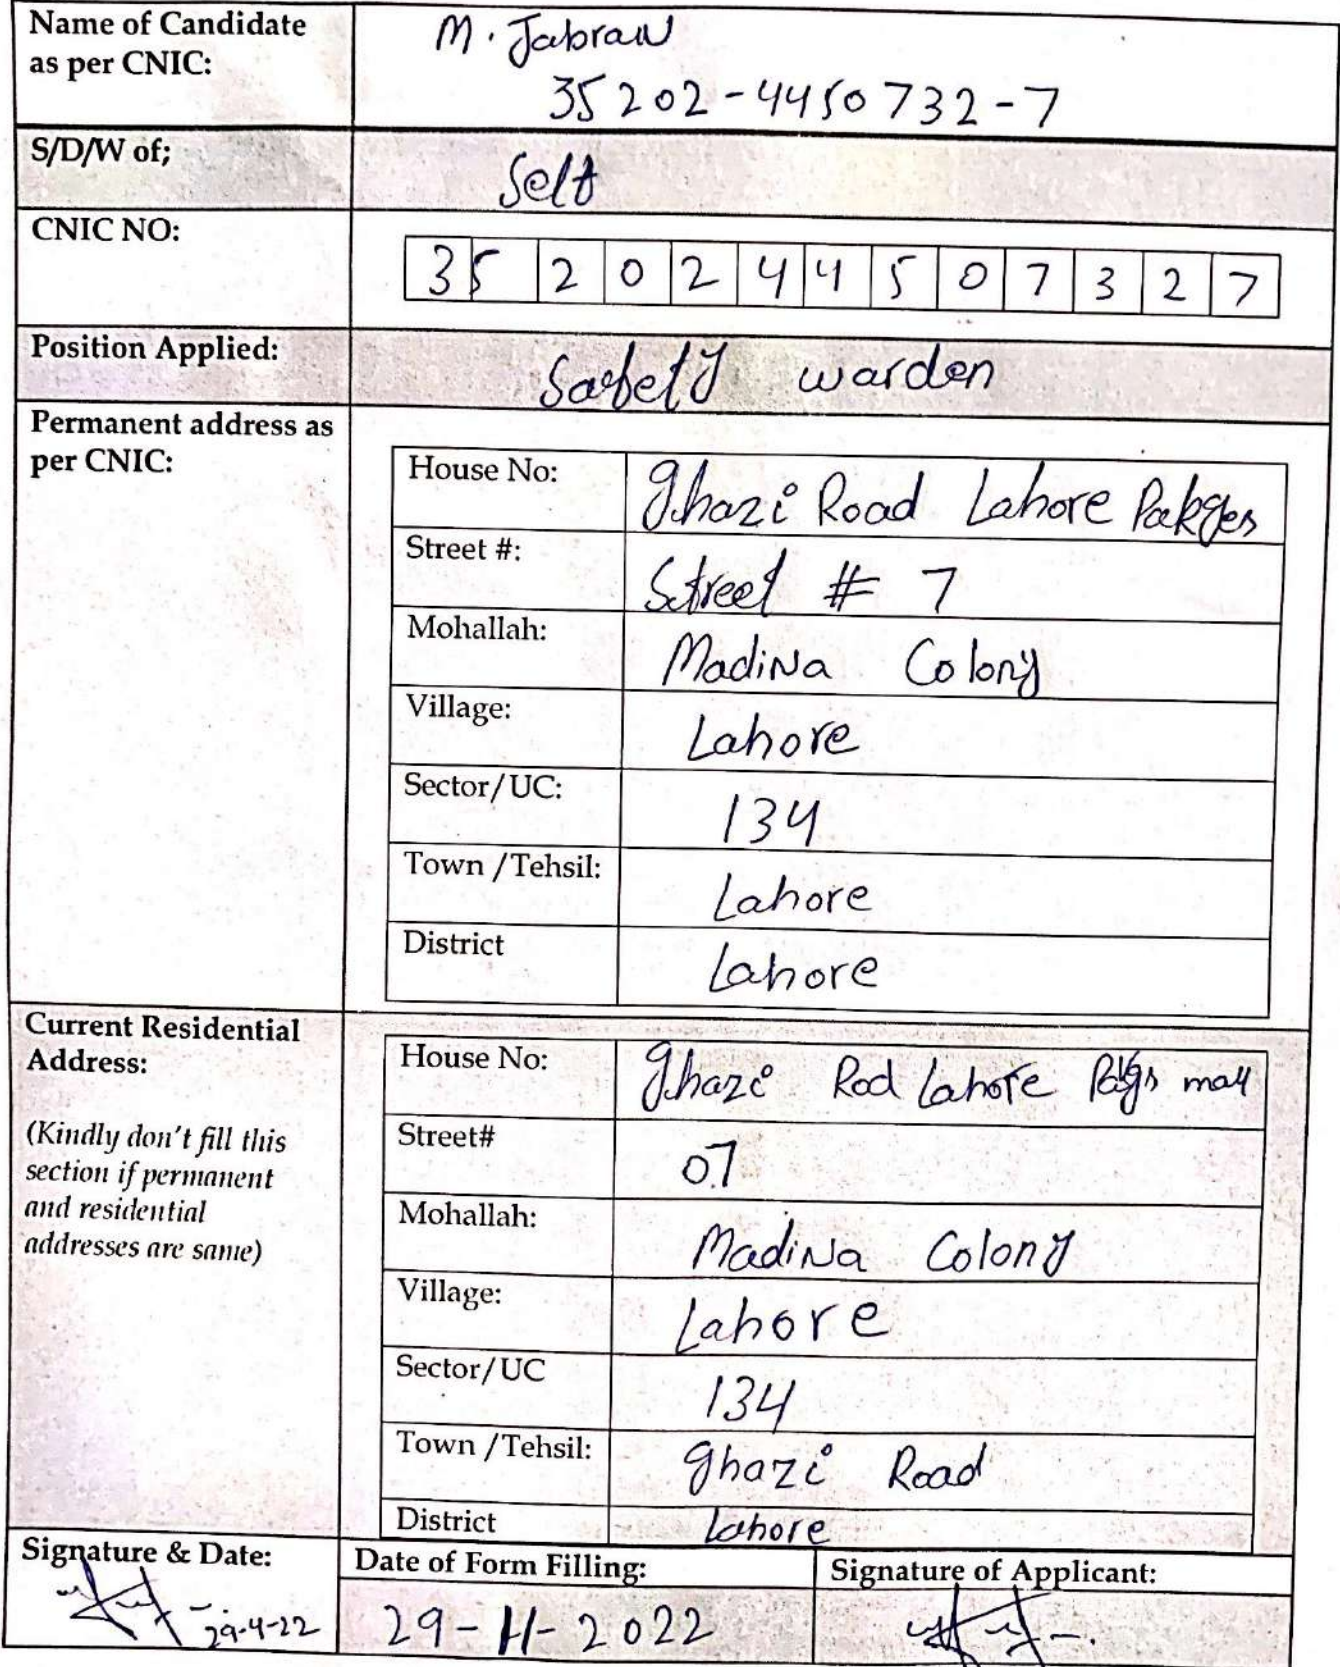 Name of Candidate
as per CNIC:
M. Jabran
35202-4450732-7
S/D/W of;
Self
CNIC NO:
3520244507327
Position Applied:
Safety warden
Permanent address as
per CNIC:
House No:
Ghazi Road Lahore Pakges
Street #:
Street # 7
Mohallah:
Madina Colony
Village:
Lahore
Sector/UC:
134
Town /Tehsil:
Lahore
District
Lahore
Current Residential
Address:
(Kindly don't fill this
section if permanent
and residential
addresses are same)
House No:
Ghazi Rod Lahore mall
Street#
07
Mohallah:
Madina Colony
Village:
Lahore
Sector/UC
134
Town /Tehsil:
Ghazi Road
District
Lahore
Signature & Date:
29-4-22
Date of Form Filling:
29-11-2022
Signature of Applicant: